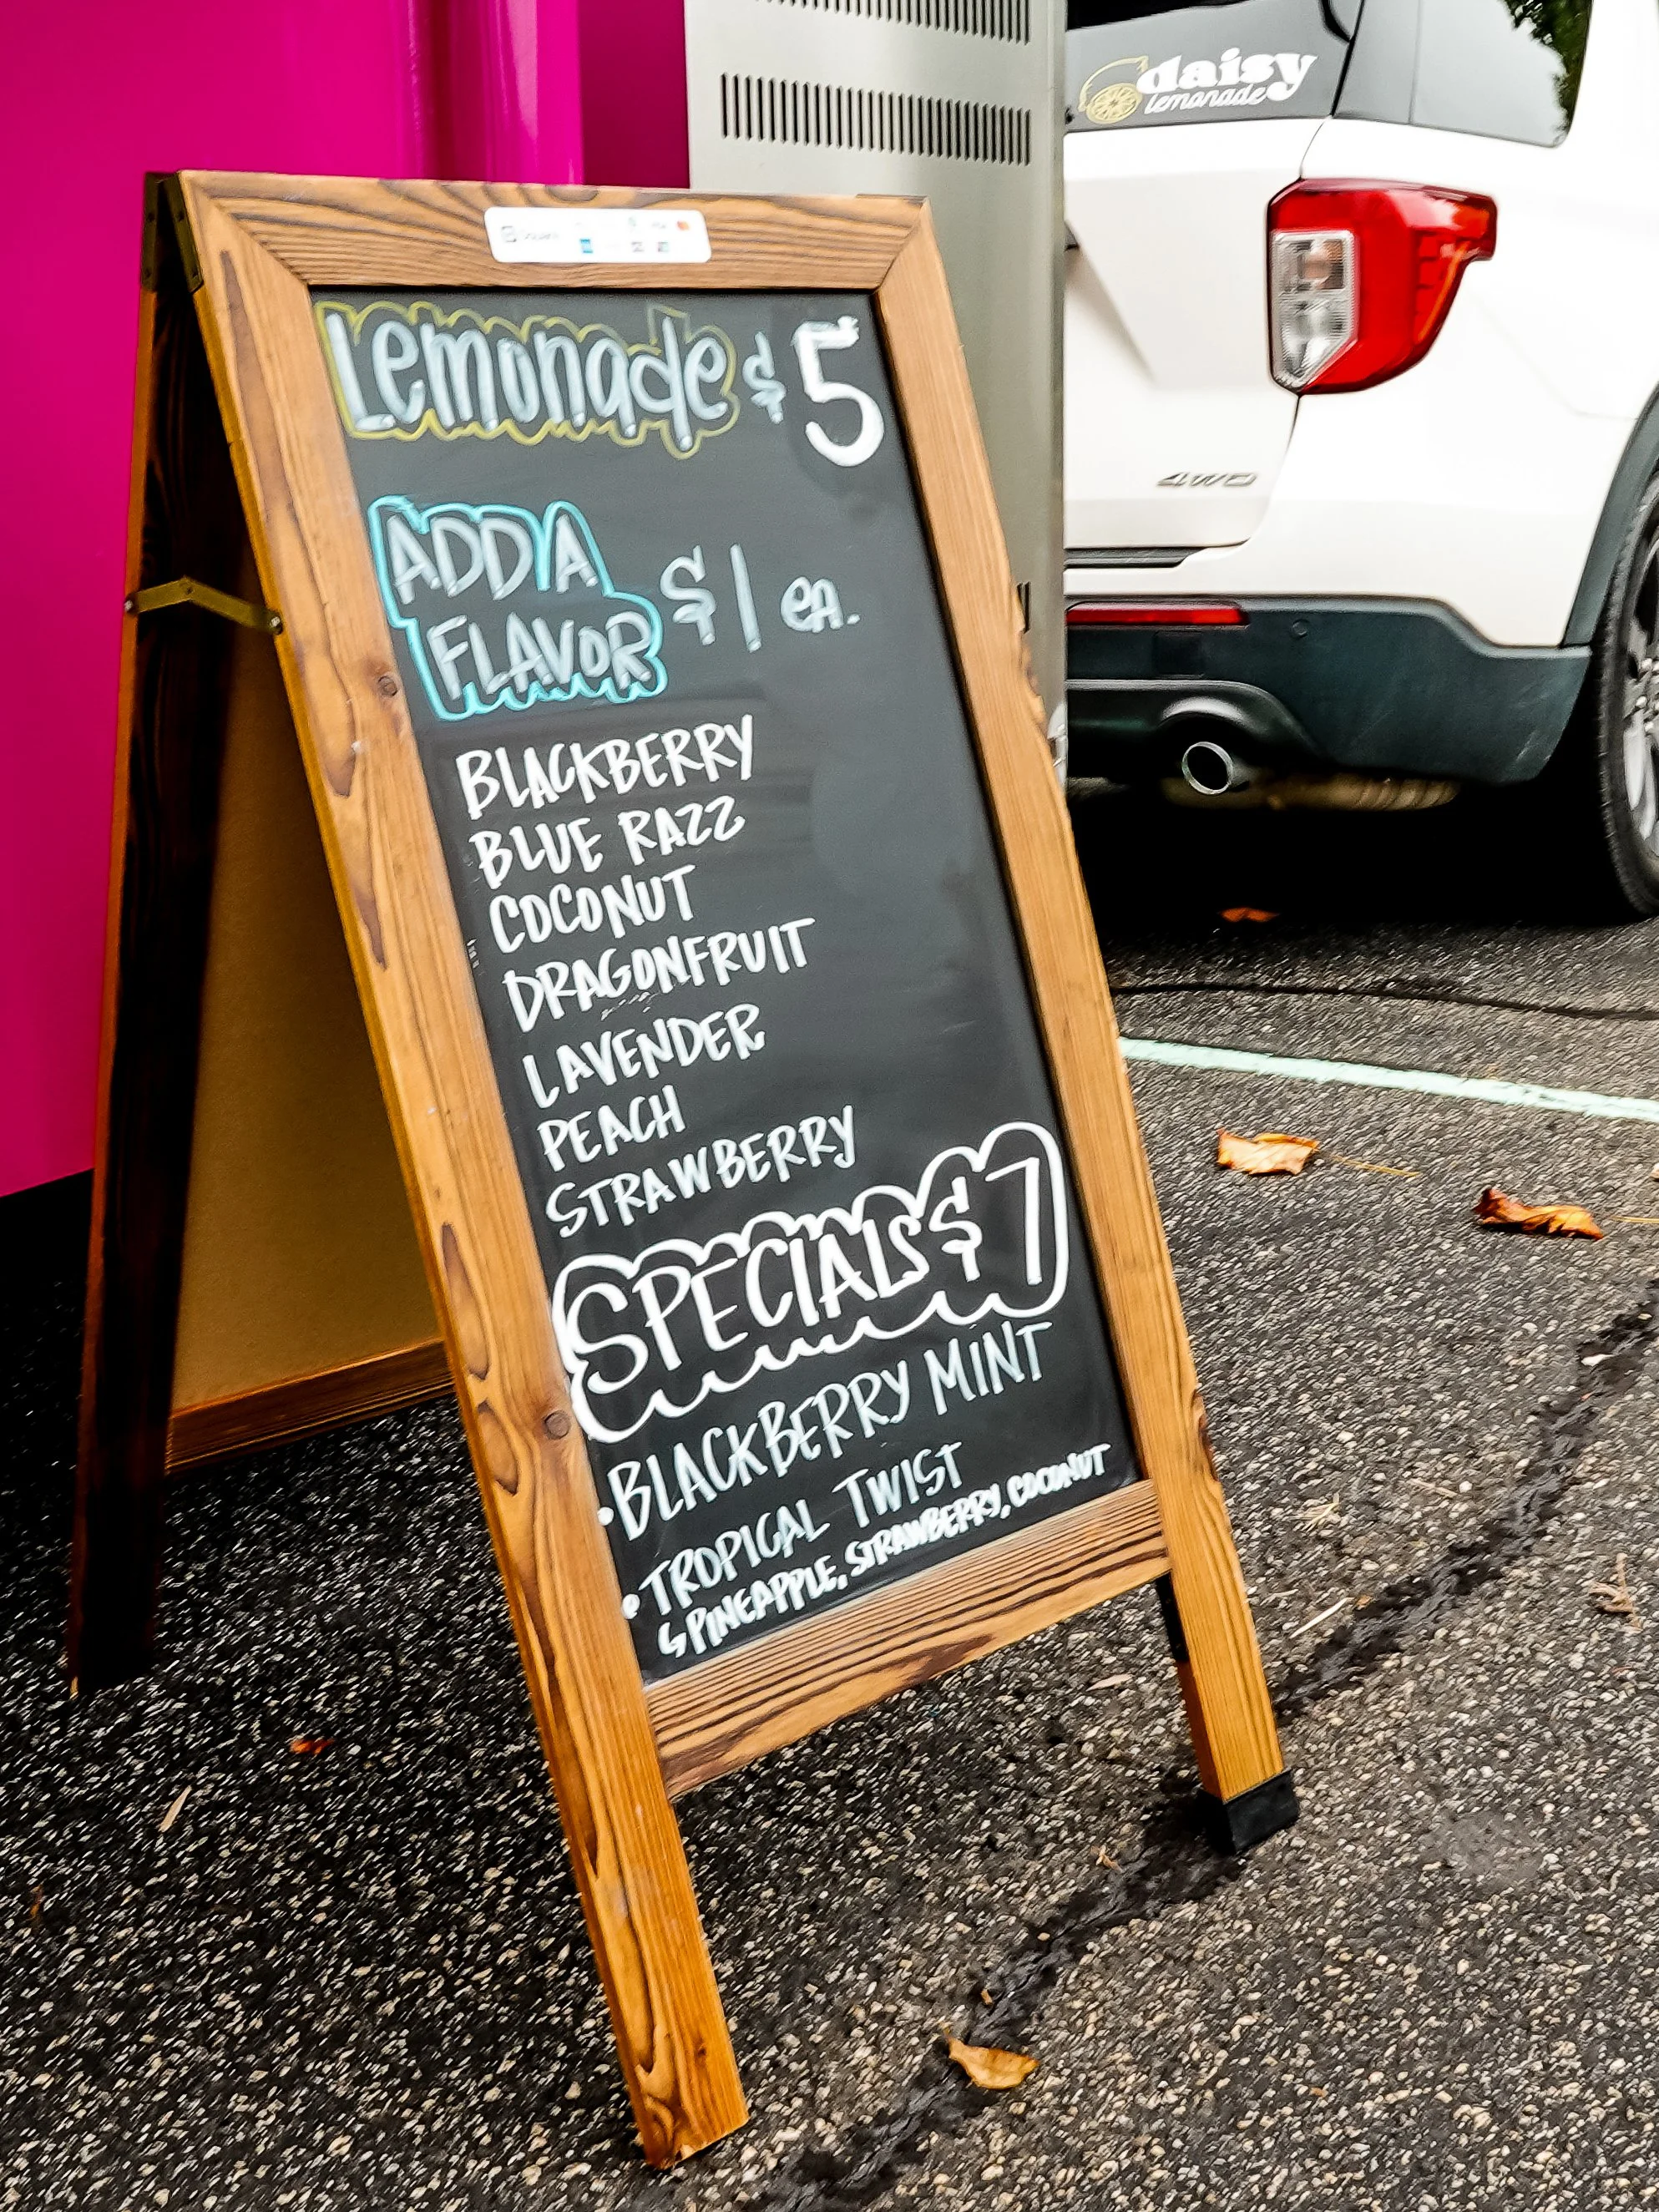 daisy
lemonade
Square
Lemonade $5
ADD A
FLAVOR $1 ea.
BLACKBERRY
BLUE RAZZ
COCONUT
DRAGONFRUIT
LAVENDER
PEACH
STRAWBERRY
SPECIALS $7
• BLACKBERRY MINT
• TROPICAL TWIST
↳ PINEAPPLE, STRAWBERRY, COCONUT
4WD